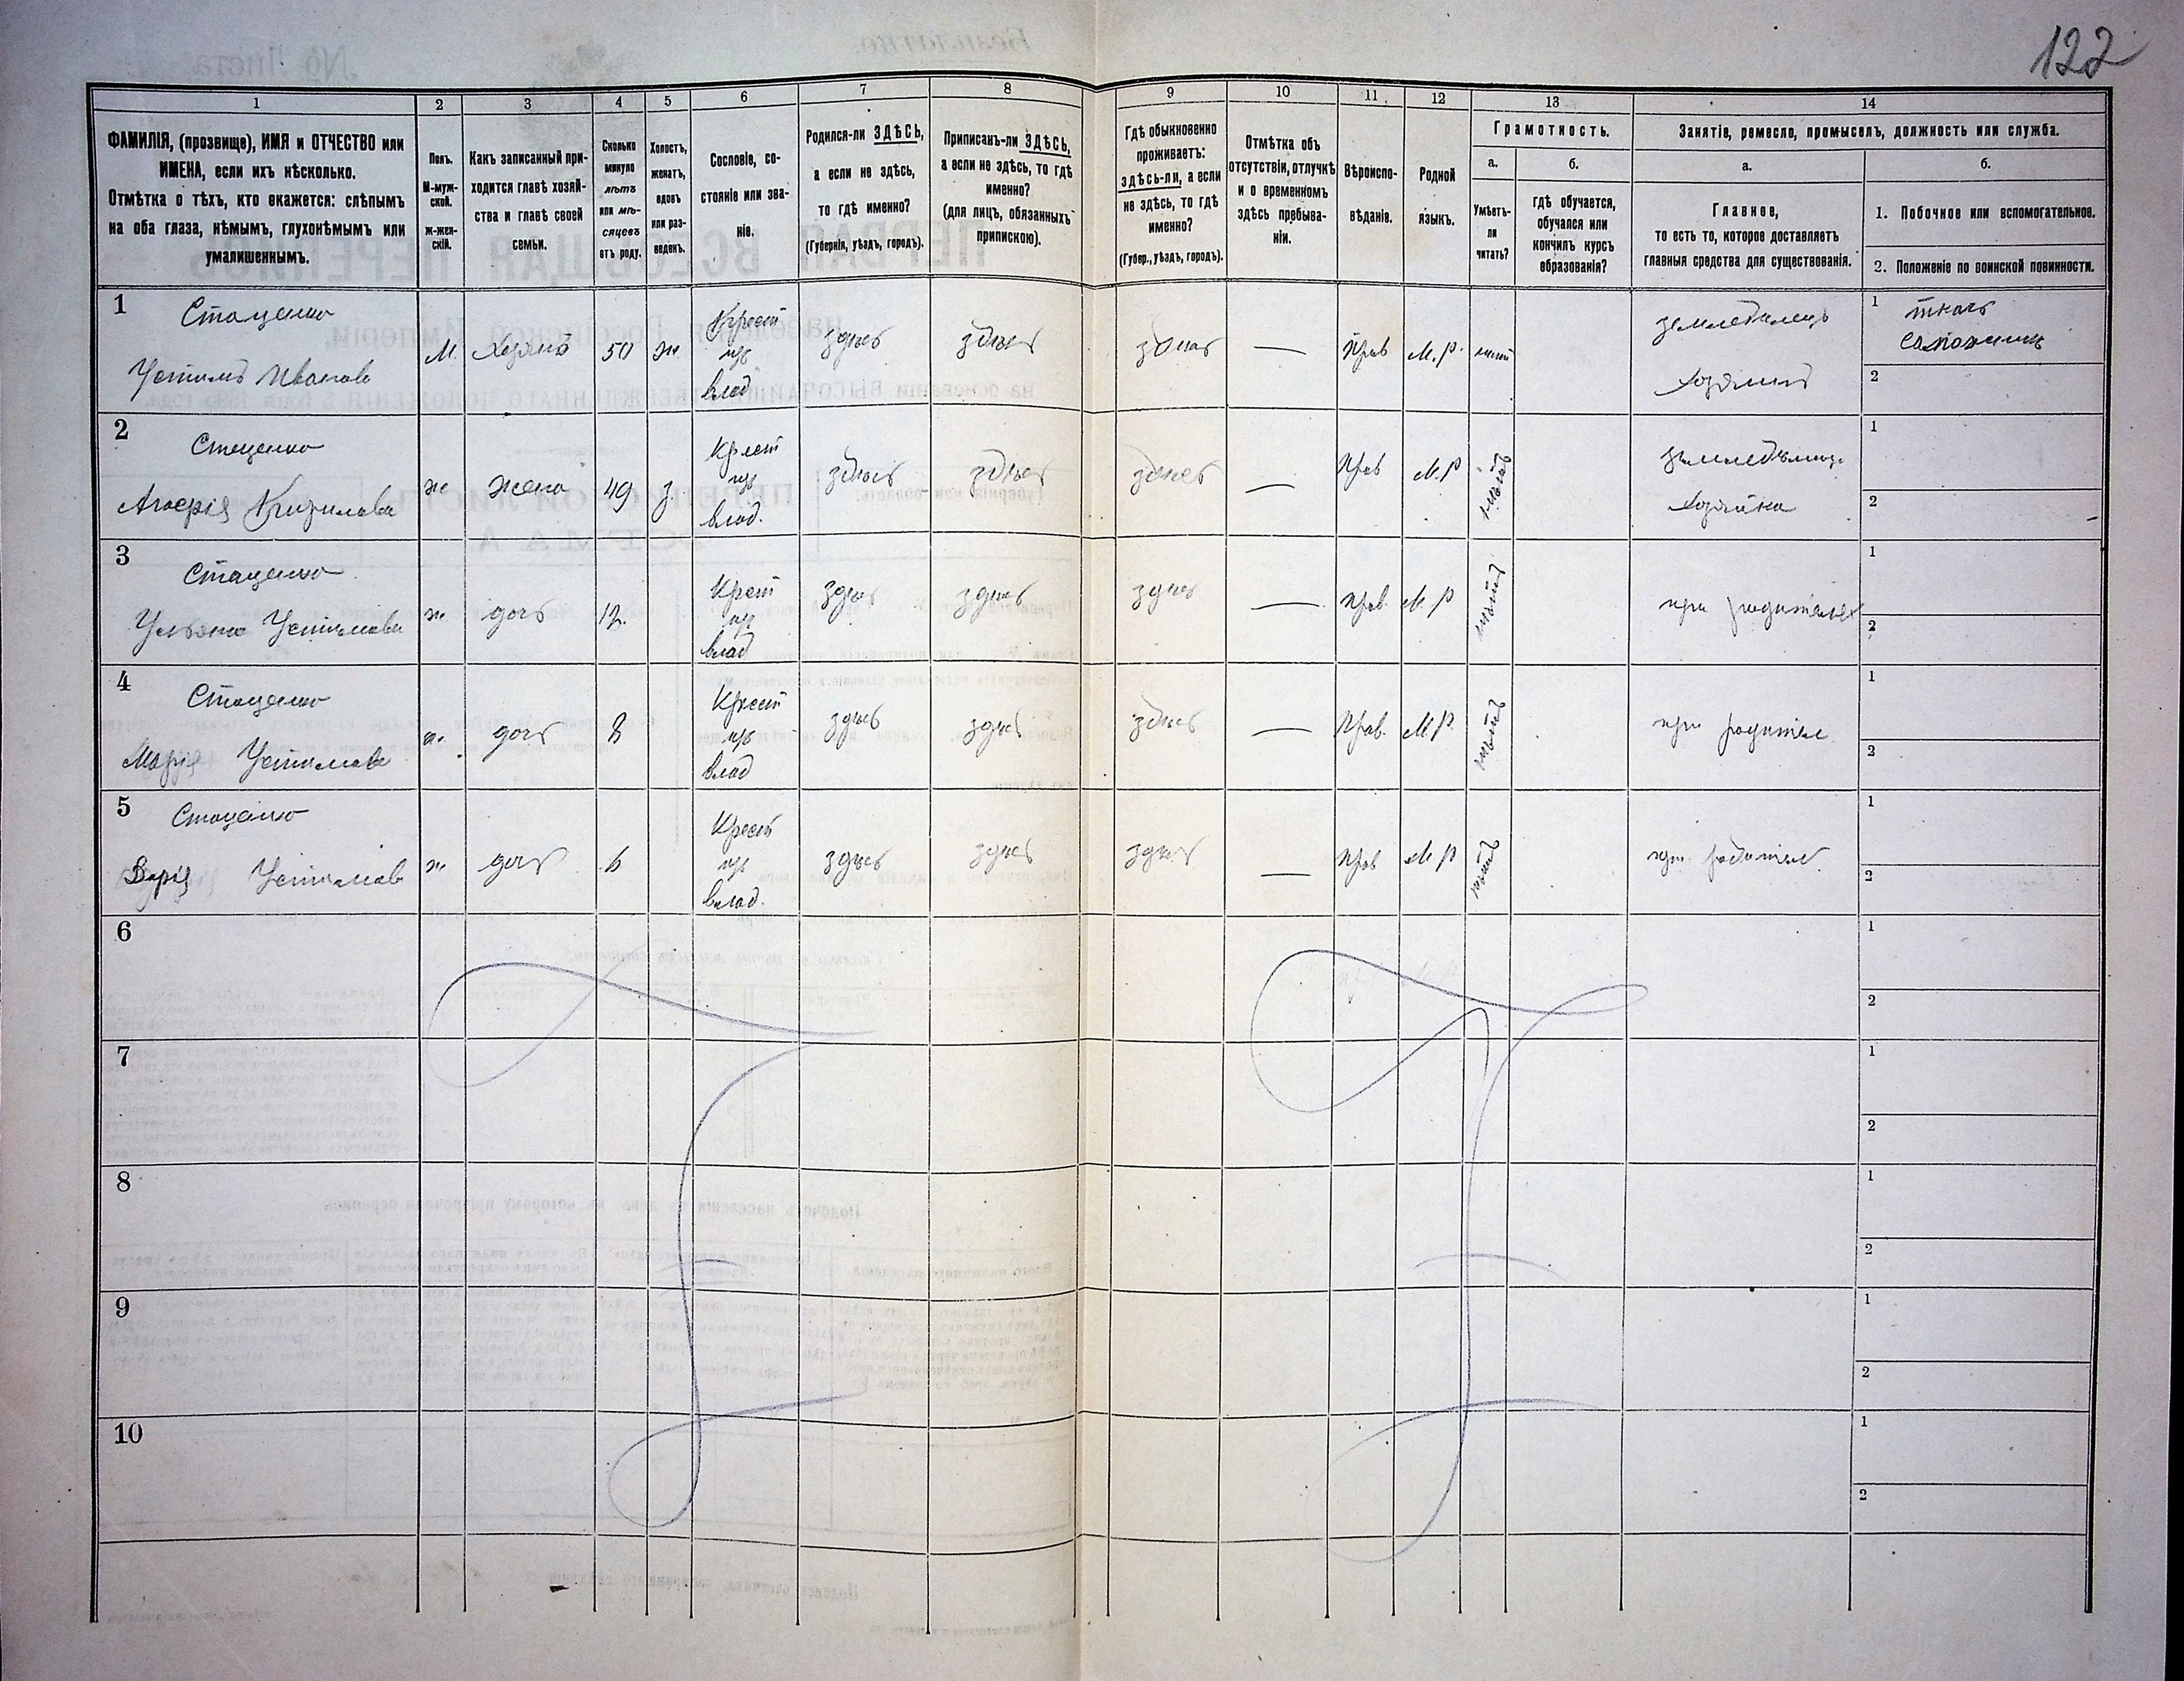 122
1 2 3 4 5 6 7 8 9 10 11 12 13 14
ФАМИЛІЯ, (прозвище), ИМЯ и ОТЧЕСТВО или
ИМЕНА, если ихъ нѣсколько.
Отмѣтка о тѣхъ, кто окажется: слѣпымъ
на оба глаза, нѣмымъ, глухонѣмымъ или
умалишеннымъ.
Полъ.
М-муж-
ской.
ж-жен-
скій.
Какъ записанный при-
ходится главѣ хозяй-
ства и главѣ своей
семьи.
Сколько
минуло
лѣтъ
или мѣ-
сяцевъ
отъ роду.
Холостъ,
женатъ,
вдовъ
или раз-
веденъ.
Сословіе, со-
стояніе или зва-
ніе.
Родился-ли ЗДѢСЬ,
а если не здѣсь,
то гдѣ именно?
(Губернія, уѣздъ, городъ).
Приписанъ-ли ЗДѢСЬ,
а если не здѣсь, то гдѣ
именно?
(для лицъ, обязанныхъ
припискою).
Гдѣ обыкновенно
проживаетъ:
здѣсь-ли, а если
не здѣсь, то гдѣ
именно?
(Губер., уѣздъ, городъ).
Отмѣтка объ
отсутствіи, отлучкѣ
и о временномъ
здѣсь пребыва-
ніи.
Вѣроиспо-
вѣданіе.
Родной
языкъ.
Грамотность.
а.
Умѣетъ-
ли
читать?
б.
гдѣ обучается,
обучался или
кончилъ курсъ
образованія?
Занятіе, ремесло, промыселъ, должность или служба.
а.
Главное,
то есть то, которое доставляетъ
главныя средства для существованія.
б.
1. Побочное или вспомогательное.
2. Положеніе по воинской повинности.
1
Стаценко
Устимъ Иванов
М.
Хозяинъ
50
ж.
Крест
изъ
влад
здѣсь
здѣсь
здѣсь
—
Прав
М.р.
нѣтъ
земледѣлецъ
хозяинъ
1 ткачъ
сапожникъ
2
2
Стаценко
Кирилова
ж
жена
49
з.
Крест
изъ
влад.
здѣсь
здѣсь
здѣсь
—
Прав
М.р
нѣтъ
хозяйка
1
2
3
Стаценко
Ульяна Устимова
ж
дочь
12.
Крест
изъ
влад
здѣсь
здѣсь
здѣсь
—
прав.
М.р
нѣтъ
при родителях
1
2
4
Стаценко
Марія Устимова
ж.
дочь
8
Крест
изъ
влад
здѣсь
здѣсь
здѣсь
—
Прав.
М.р.
нѣтъ
при родител
1
2
5
Стаценко
Дарія Устимов
ж
дочь
6
Крест
изъ
влад.
здѣсь
здѣсь
здѣсь
—
Прав
М.р
нѣтъ
при родител
1
2
6
1
2
7
1
2
8
1
2
9
1
2
10
1
2